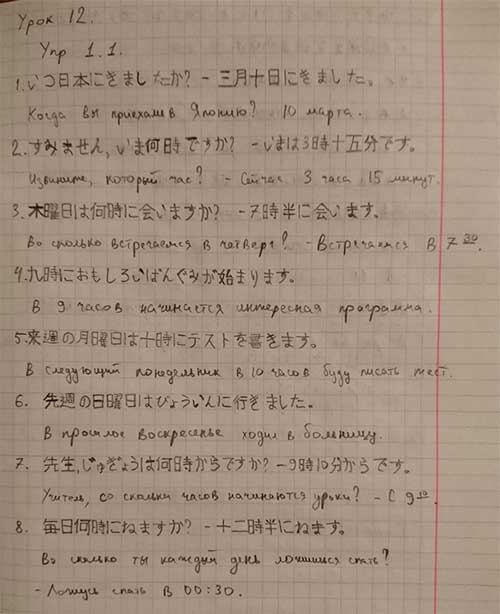 Урок 12.
Упр 1.1.
1. いつ日本にきましたか? - 三月十日にきました。
Когда вы приехали в Японию? 10 марта.
2. すみません, いま何時ですか? - いまは3時十五分です。
Извините, который час? - Сейчас 3 часа 15 минут.
3. 木曜日は何時に会いますか? - 7時半に会います。
Во сколько встречаемся в четверг? - Встречаемся в 7 30.
4. 九時におもしろいばんぐみが始まります。
В 9 часов начинается интересная программа.
5. 来週の月曜日は十時にテストを書きます。
В следующий понедельник в 10 часов буду писать тест.
6. 先週の日曜日はびょういんに行きました。
В прошлое воскресенье ходил в больницу.
7. 先生, じゅぎょうは何時からですか? - 9時10分からです。
Учитель, со скольки часов начинаются уроки? - С 9 10.
8. 毎日何時にねますか? - 十二時半にねます。
Во сколько ты каждый день ложишься спать?
- Ложусь спать в 00:30.